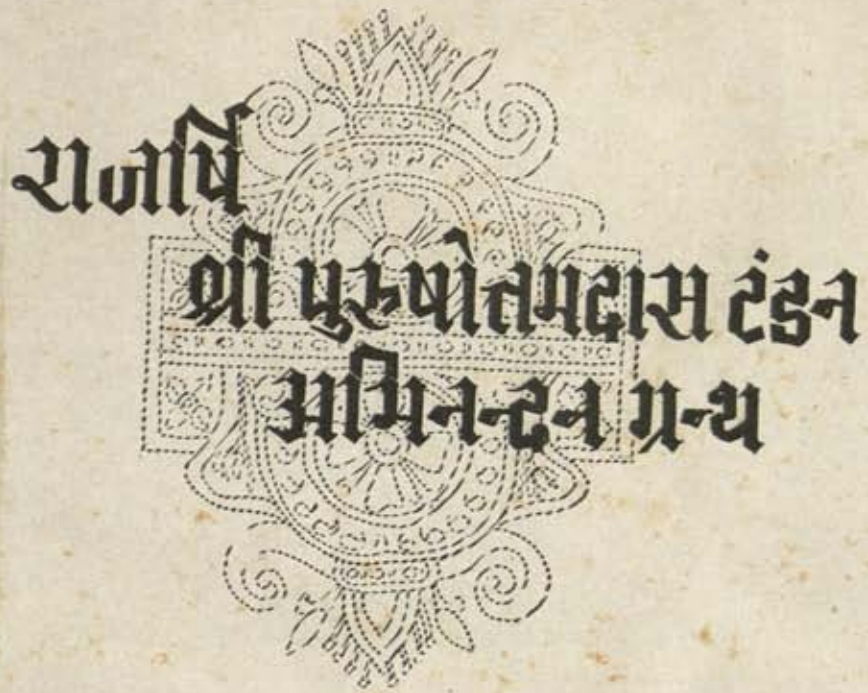 राजर्षि
श्री पुरुषोत्तमदास टंडन
अभिनन्दन ग्रन्थ